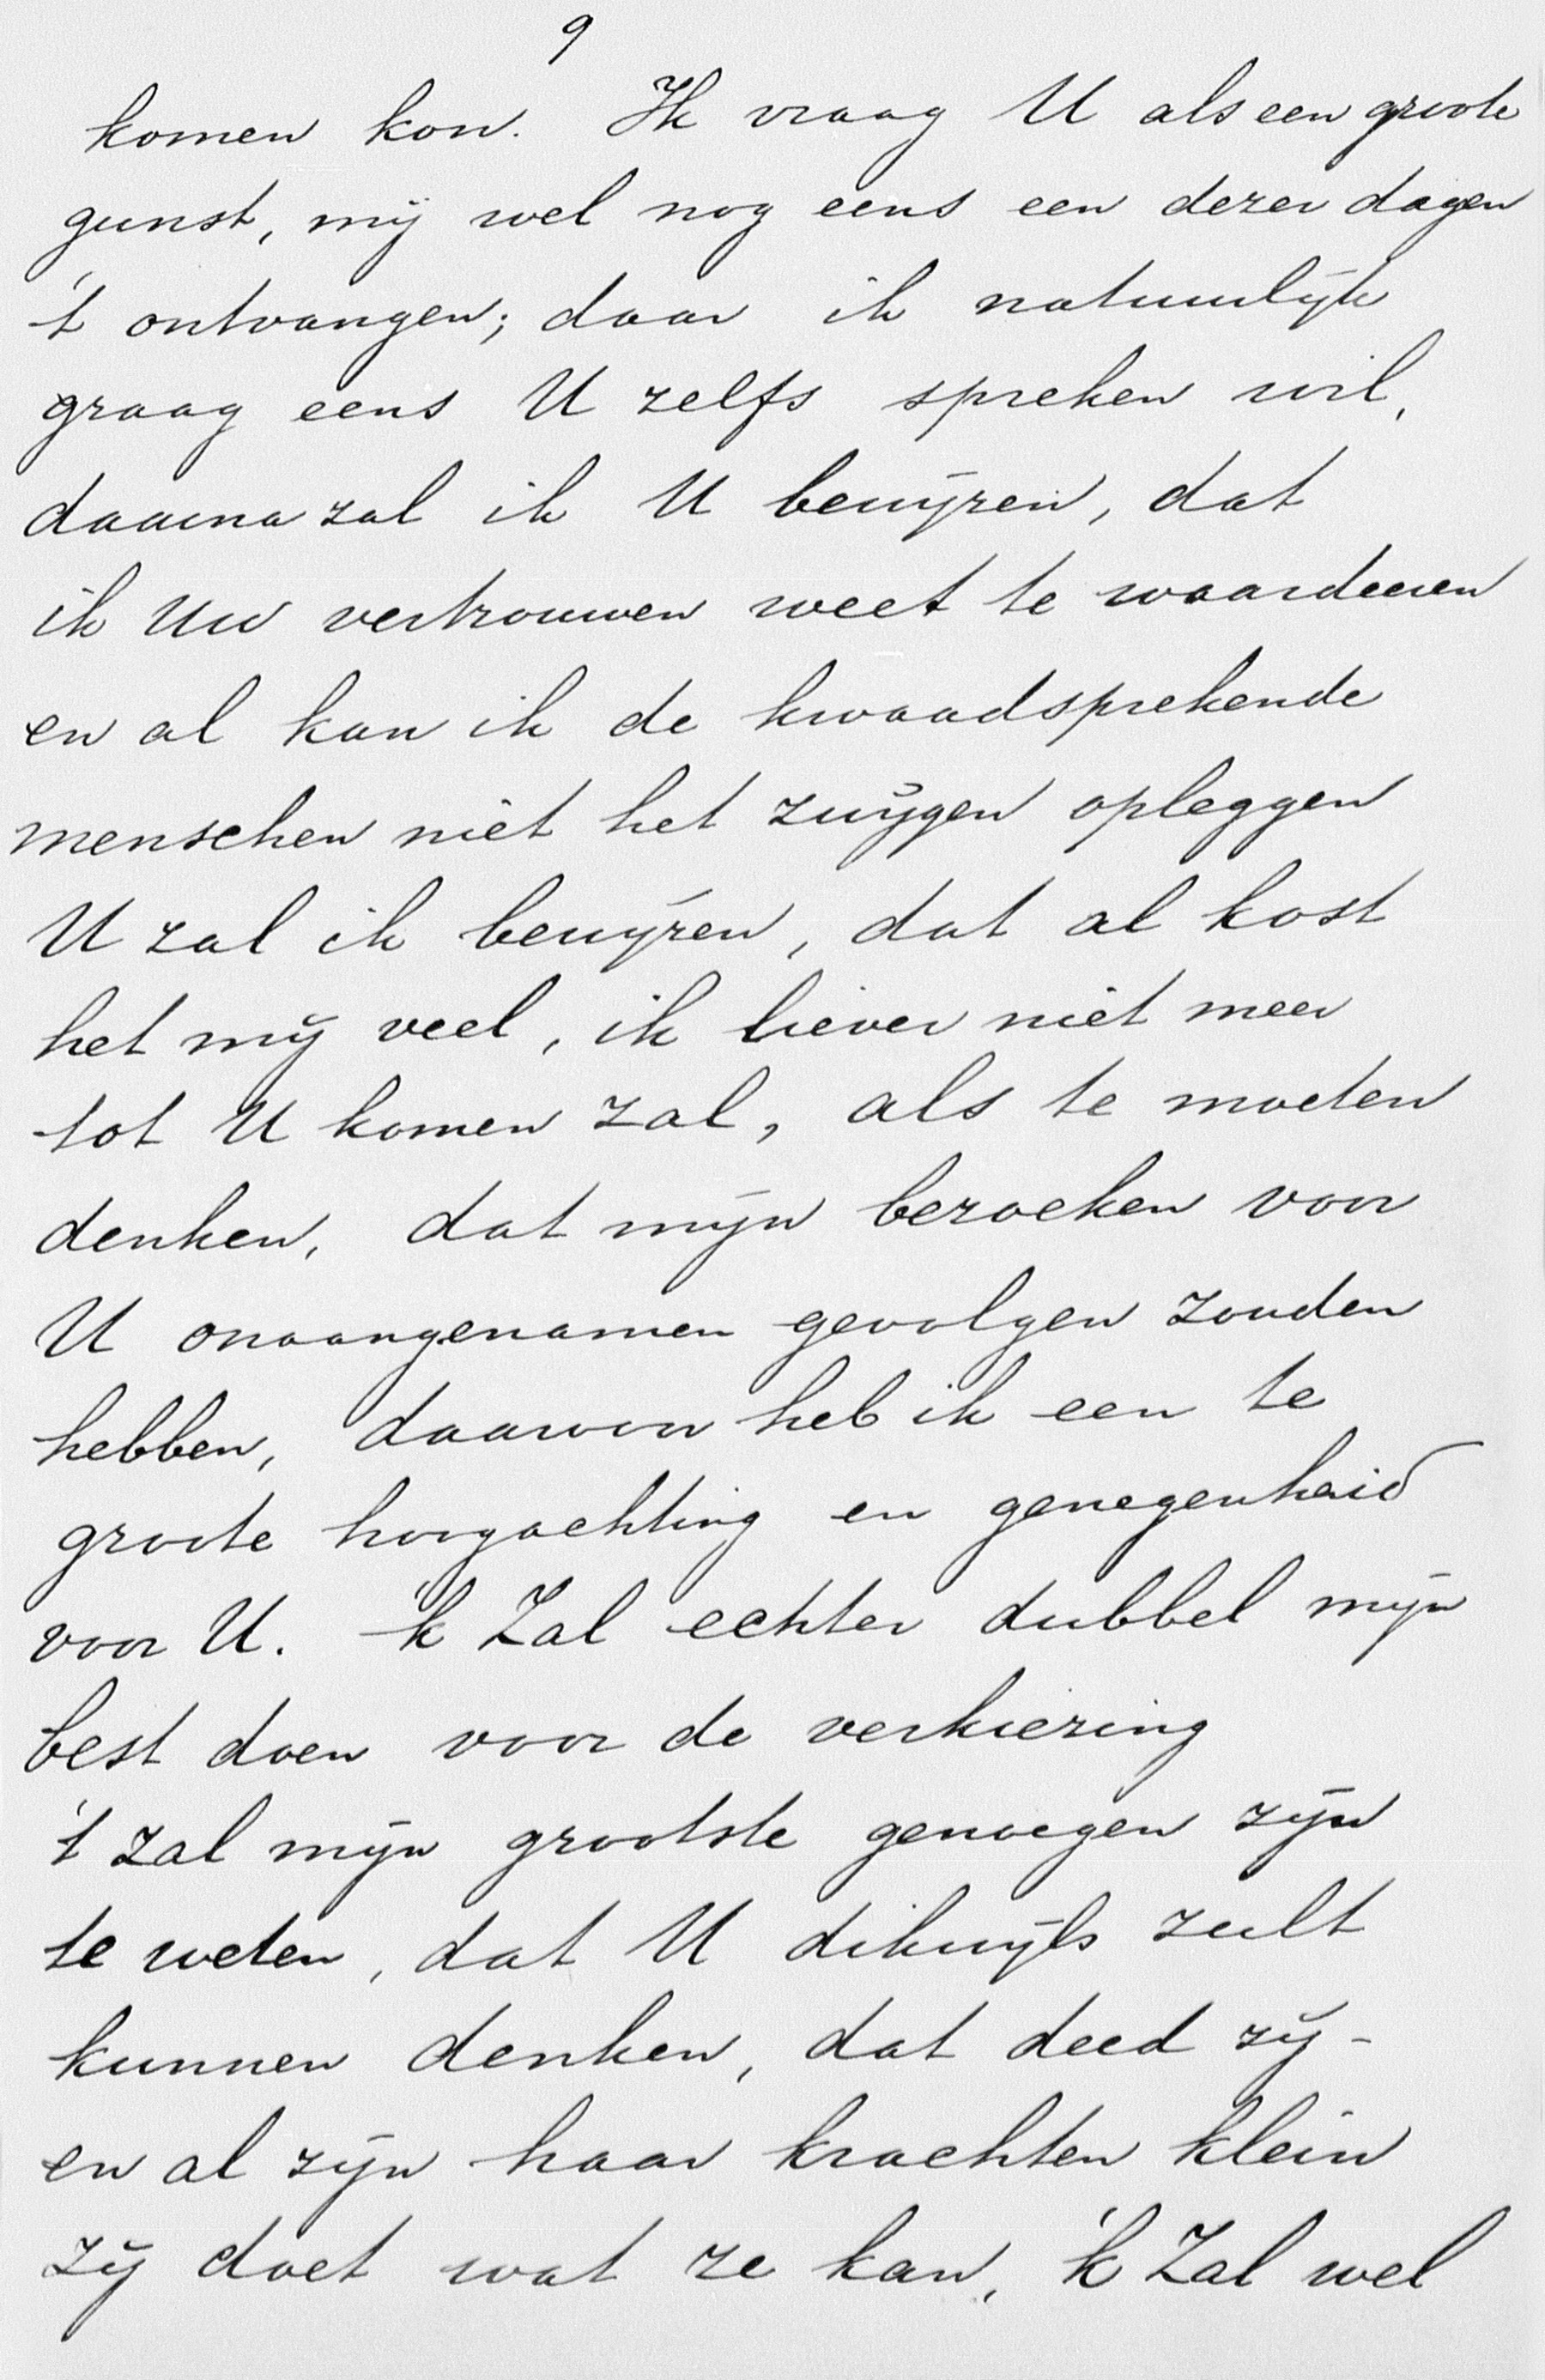 9
komen kon. Ik vraag U als een groote
gunst, mij wel nog eens een dezer dagen
't ontvangen; daar ik natuurlijk
graag eens U zelfs spreken wil,
daarna zal ik U bewijzen, dat
ik Uw vertrouwen weet te waardeeren
en al kan ik de kwaadsprekende
menschen niet het zwijgen opleggen
U zal ik bewijzen, dat al kost
het mij veel, ik liever niet meer
tot U komen zal, als te moeten
denken, dat mijn bezoeken voor
U onaangenamen gevolgen zouden
hebben, daarvoor heb ik een te
groote hoogachting en genegenheid
voor U. 'k Zal echter dubbel mijn
best doen voor de verkiezing
't zal mijn grootste genoegen zijn
te weten, dat U dikwijls zult
kunnen denken, dat deed zij -
en al zijn haar krachten klein
zij doet wat ze kan, 'k Zal wel